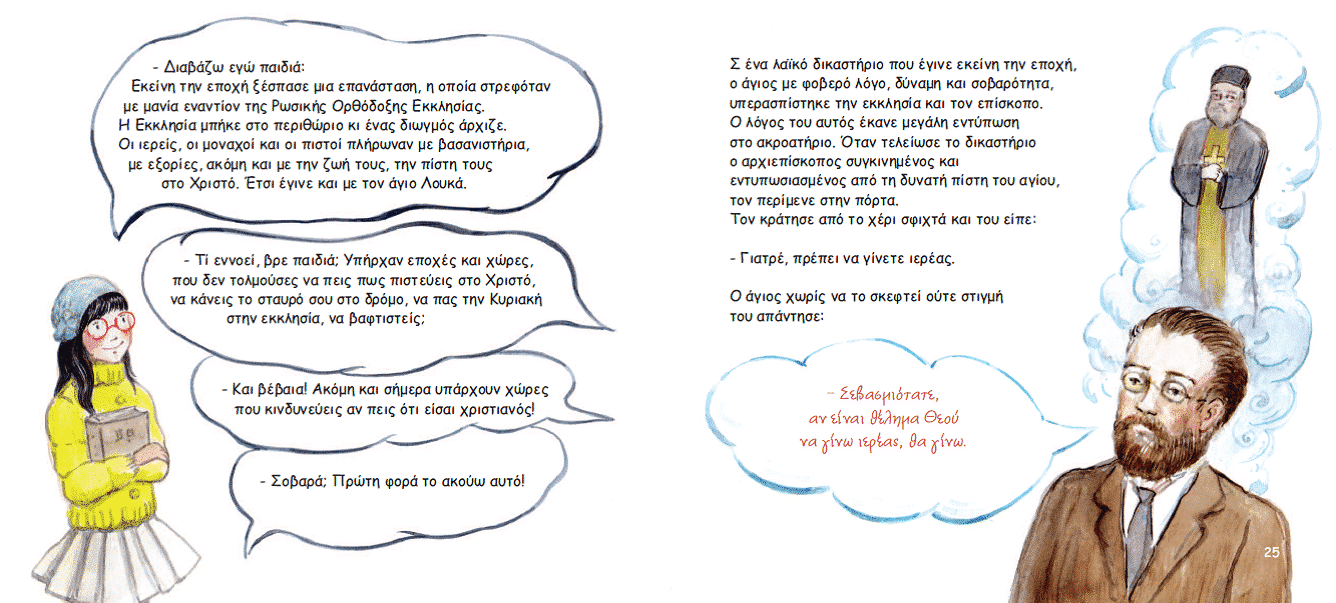 - Διαβάζω εγώ παιδιά:
Εκείνη την εποχή ξέσπασε μια επανάσταση, η οποία στρεφόταν
με μανία εναντίον της Ρωσικής Ορθόδοξης Εκκλησίας.
Η Εκκλησία μπήκε στο περιθώριο κι ένας διωγμός άρχιζε.
Οι ιερείς, οι μοναχοί και οι πιστοί πλήρωναν με βασανιστήρια,
με εξορίες, ακόμη και με την ζωή τους, την πίστη τους
στο Χριστό. Έτσι έγινε και με τον άγιο Λουκά.
- Τί εννοεί, βρε παιδιά; Υπήρχαν εποχές και χώρες,
που δεν τολμούσες να πεις πως πιστεύεις στο Χριστό,
να κάνεις το σταυρό σου στο δρόμο, να πας την Κυριακή
στην εκκλησία, να βαφτιστείς;
- Και βέβαια! Ακόμη και σήμερα υπάρχουν χώρες
που κινδυνεύεις αν πεις ότι είσαι χριστιανός!
- Σοβαρά; Πρώτη φορά το ακούω αυτό!
Σ ένα λαϊκό δικαστήριο που έγινε εκείνη την εποχή,
ο άγιος με φοβερό λόγο, δύναμη και σοβαρότητα,
υπερασπίστηκε την εκκλησία και τον επίσκοπο.
Ο λόγος του αυτός έκανε μεγάλη εντύπωση
στο ακροατήριο. Όταν τελείωσε το δικαστήριο
ο αρχιεπίσκοπος συγκινημένος και
εντυπωσιασμένος από τη δυνατή πίστη του αγίου,
τον περίμενε στην πόρτα.
Τον κράτησε από το χέρι σφιχτά και του είπε:
- Γιατρέ, πρέπει να γίνετε ιερέας.
Ο άγιος χωρίς να το σκεφτεί ούτε στιγμή
του απάντησε:
- Σεβασμιότατε,
αν είναι θέλημα Θεού
να γίνω ιερέας, θα γίνω.
25